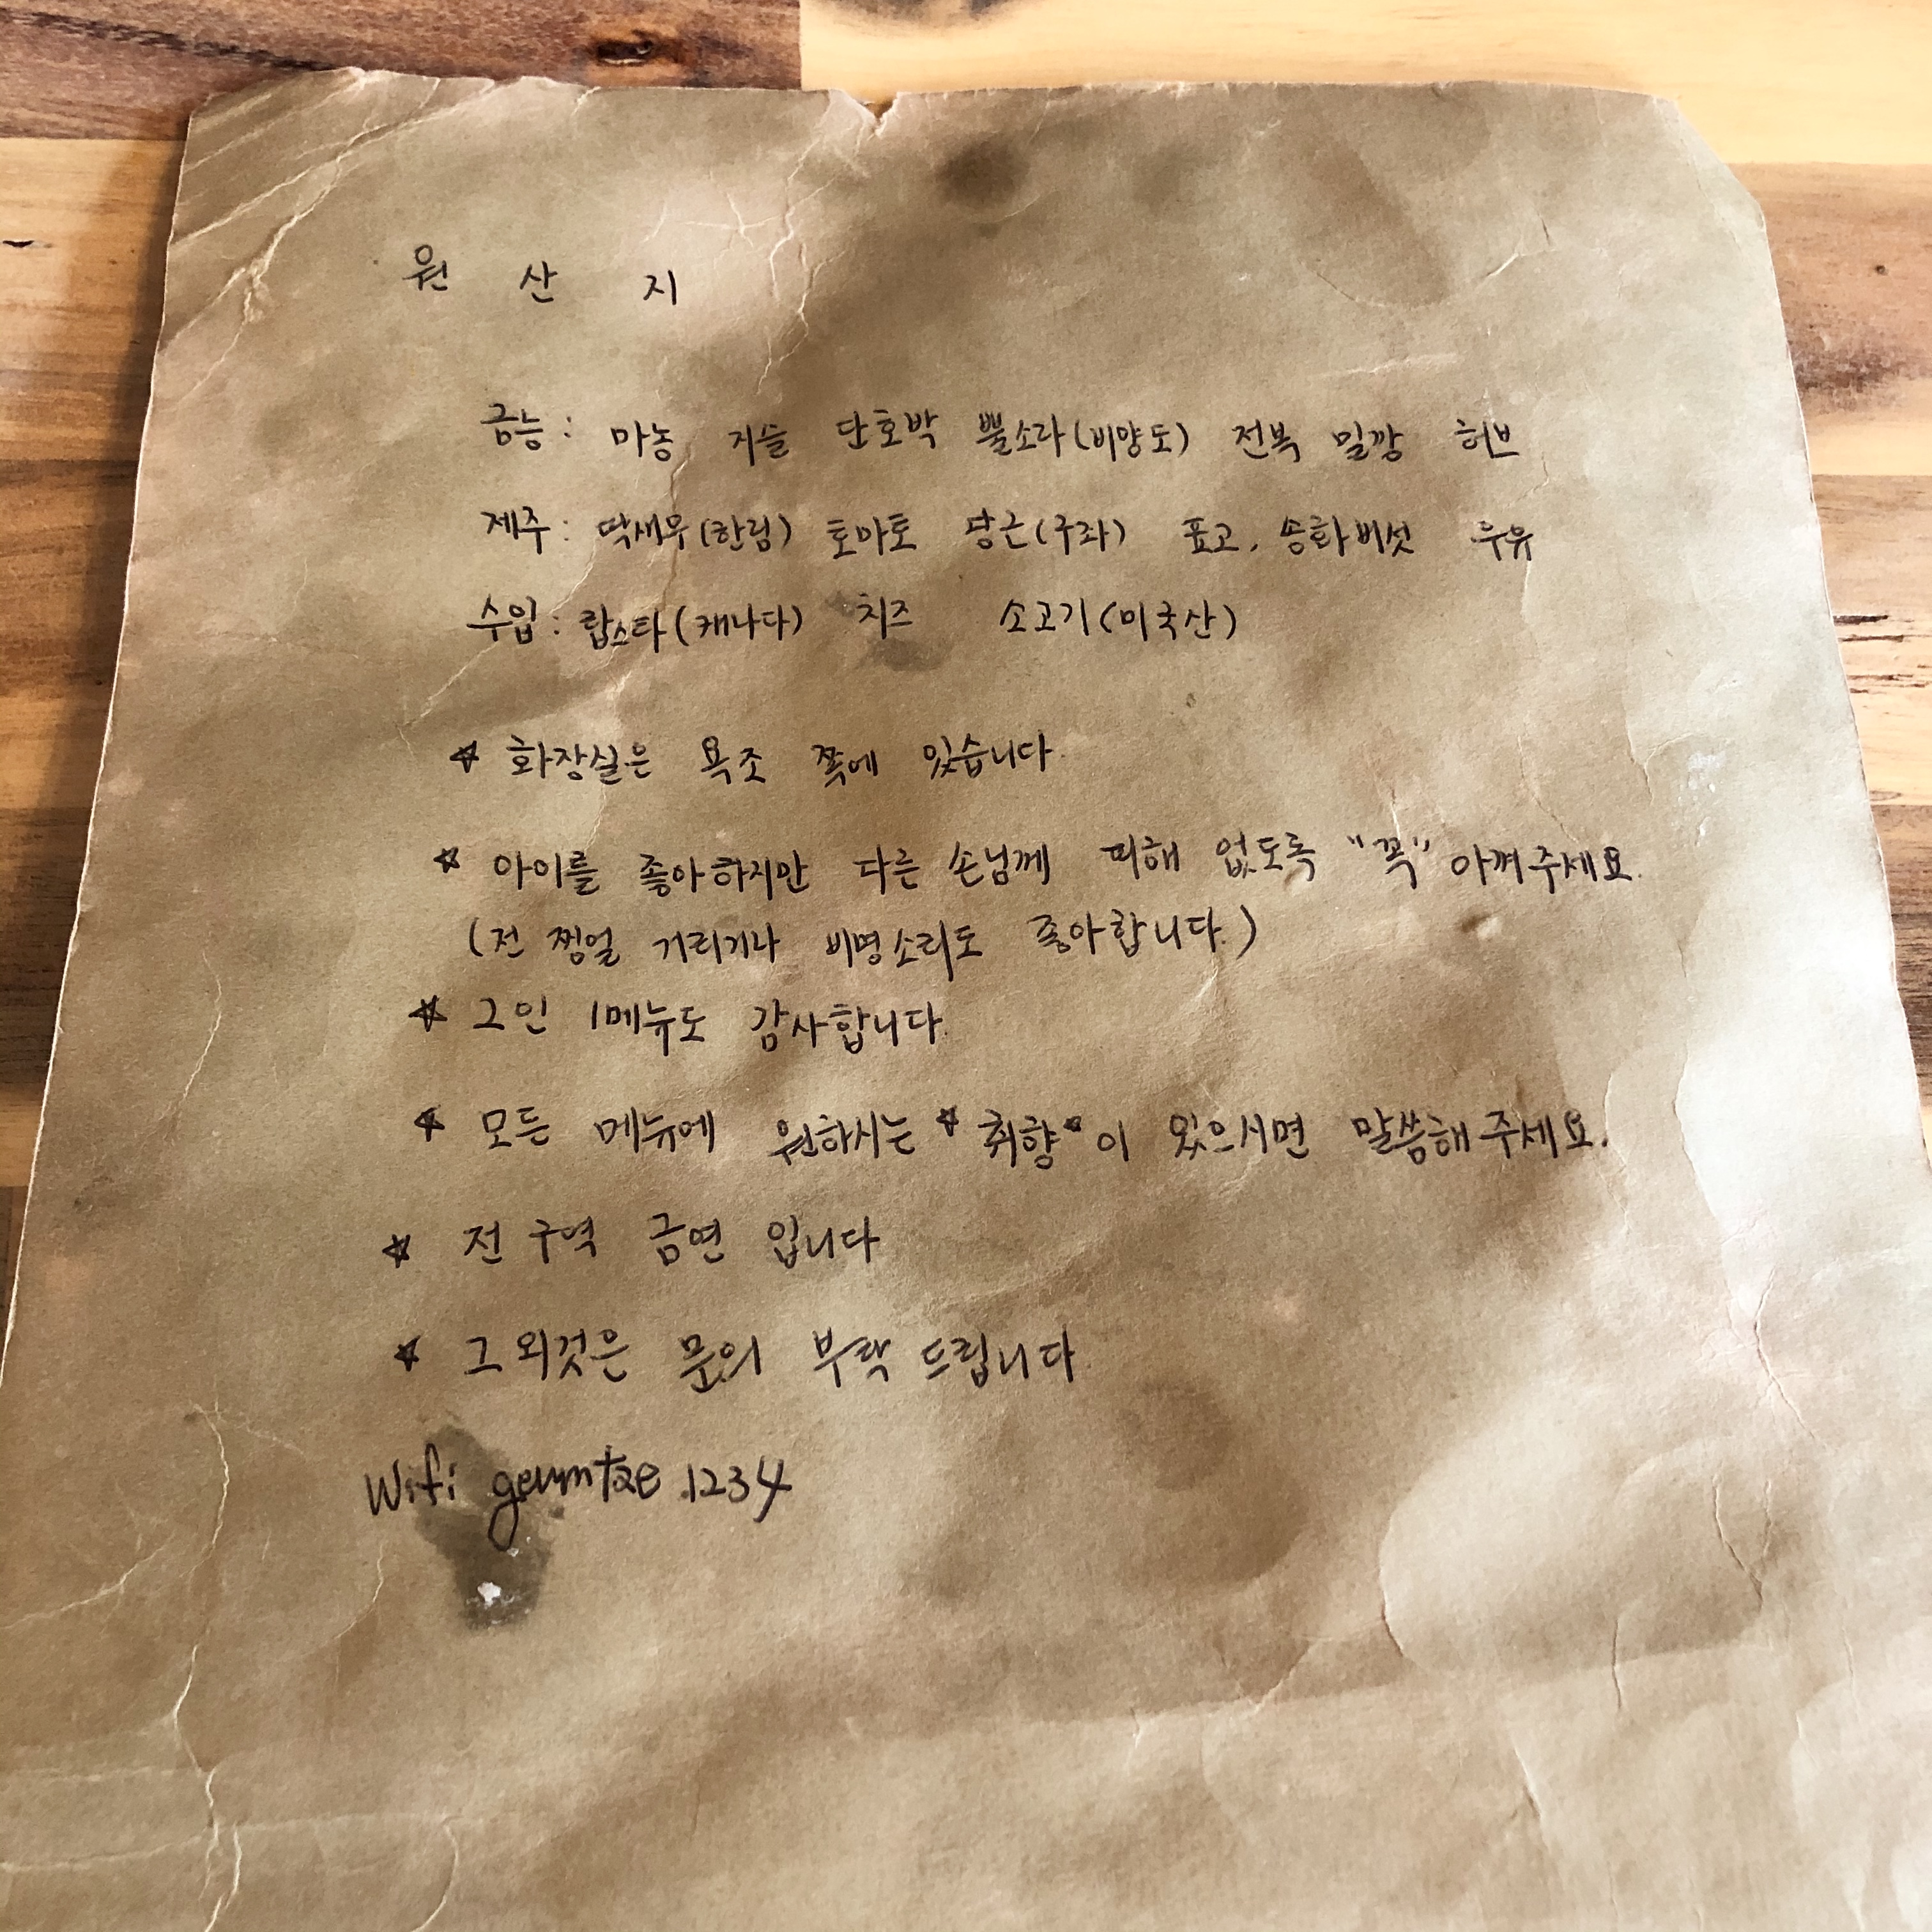 원 산 지
금능 : 마농 지슬 단호박 뿔소라(비양도) 전복 밀깡 허브
제주 : 딱새우(한림) 토마토 당근(구좌) 표고, 송화버섯 우유
수입 : 랍스타(캐나다) 치즈 소고기(미국산)
☆ 화장실은 욕조 쪽에 있습니다.
☆ 아이를 좋아하지만 다른 손님께 피해 없도록 "꼭" 아껴주세요.
(전 찡얼 거리거나 비명소리도 좋아합니다.)
☆ 2인 1메뉴도 감사합니다.
☆ 모든 메뉴에 원하시는 "취향"이 있으시면 말씀해주세요.
☆ 전 구역 금연 입니다
☆ 그외것은 문의 부탁 드립니다.
Wifi geumtae.1234